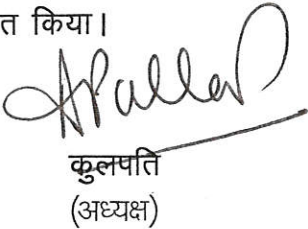 त किया।
कुलपति
(अध्यक्ष)